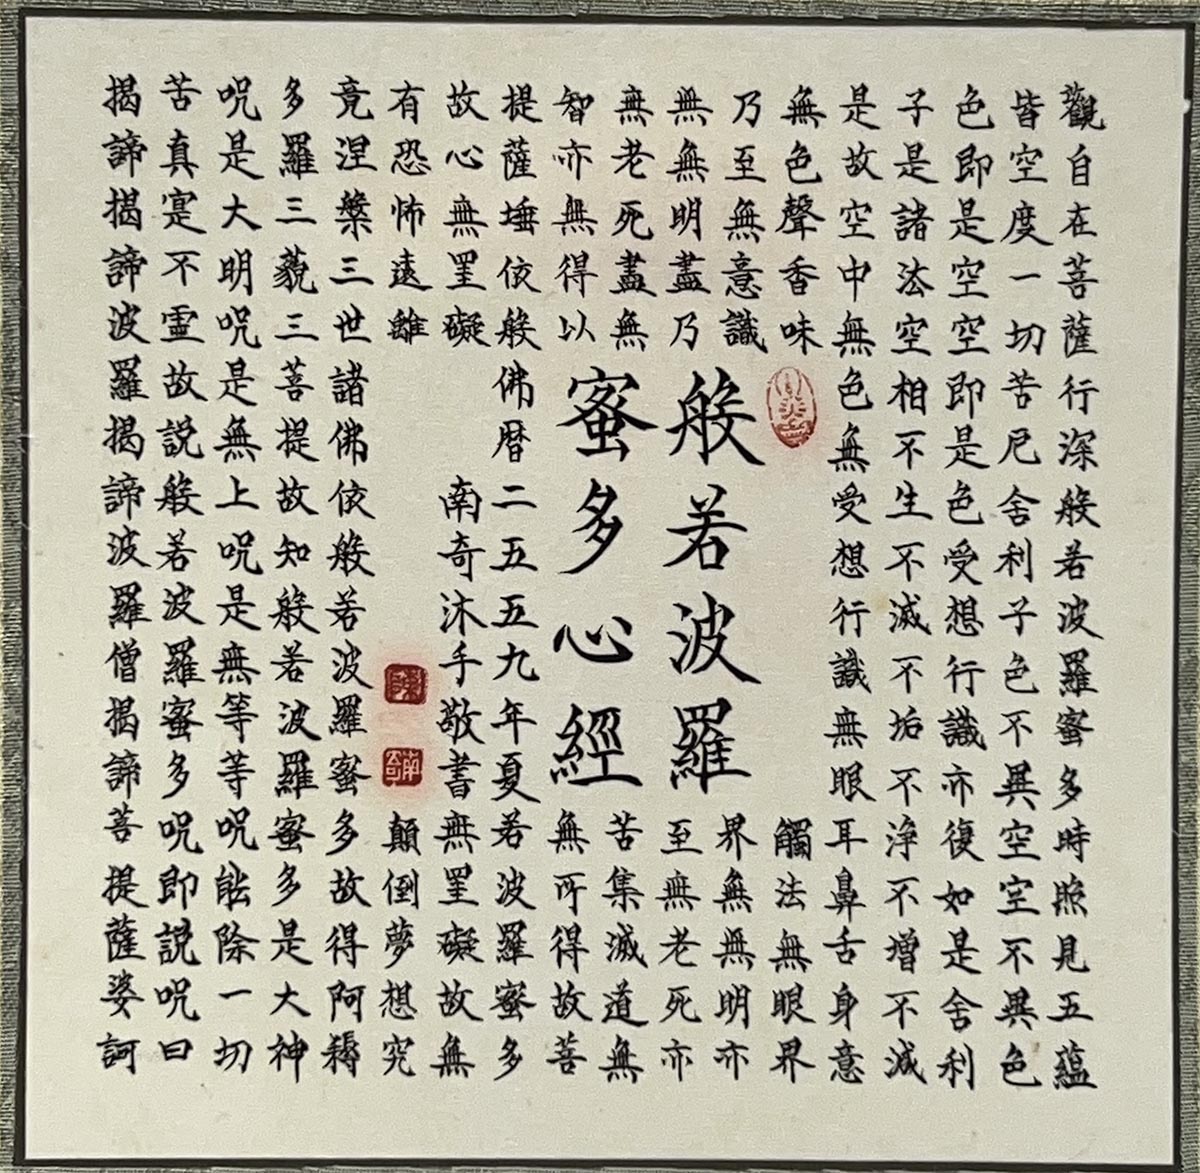 般若波羅
蜜多心經
觀自在菩薩行深般若波羅蜜多時照見五蘊
皆空度一切苦厄舍利子色不異空空不異色
色即是空空即是色受想行識亦復如是舍利
子是諸法空相不生不滅不垢不淨不增不減
是故空中無色無受想行識無眼耳鼻舌身意
無色聲香味
觸法無眼界
乃至無意識
界無無明亦
無無明盡乃
至無老死亦
無老死盡無
苦集滅道無
智亦無得以
無所得故菩
提薩埵依般
若波羅蜜多
故心無罣礙
無罣礙故無
有恐怖遠離
顛倒夢想究
竟涅槃三世諸佛依般若波羅蜜多故得阿耨
多羅三藐三菩提故知般若波羅蜜多是大神
呪是大明呪是無上呪是無等等呪能除一切
苦真寔不虛故説般若波羅蜜多呪即説呪曰
揭諦揭諦波羅揭諦波羅僧揭諦菩提薩婆訶
佛暦二五五九年夏
南奇沐手敬書
陳
南奇